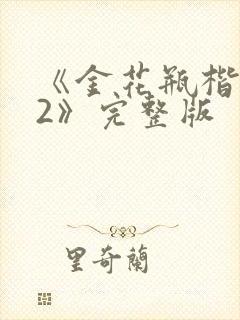 《金花瓶楷
2》完整版
里奇蘭